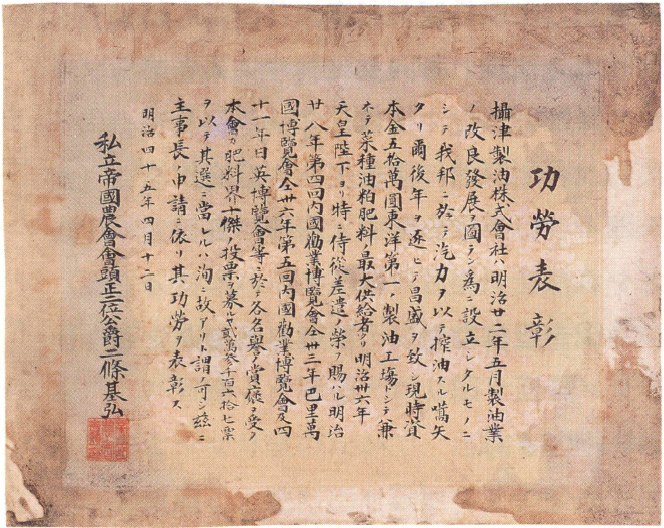 功勞表彰
攝津製油株式會社ハ明治廿二年五月製油業
ノ改良發展ヲ圖ラン爲ニ設立シタルモノニ
シテ我邦ニ於テ汽力ヲ以テ搾油スル嚆矢
タリ爾後年ヲ逐ヒテ昌盛ヲ致シ現時資
本金五拾萬圓東洋第一ノ製油工場トシテ兼
ネテ菜種油粕肥料最大供給者タリ明治卅六年
天皇陛下ヨリ特ニ侍從差遣ノ榮ヲ賜ハル明治
廿八年第四回内國勸業博覽會仝卅三年巴里萬
國博覽會仝卅六年第五回内國勸業博覽會及四
十一年日英博覽會等ニ於テ各名譽ノ賞價ヲ受ク
本會カ肥料界一傑ノ投票ヲ募ル貳萬參千百六拾七票
ヲ以テ其選ニ當レルハ洵ニ故アリト謂フ可シ玆ニ
主事長ノ申請ニ依リ其功勞ヲ表彰ス
明治四十五年四月十二日
私立帝國農會會頭正二位公爵二條基弘